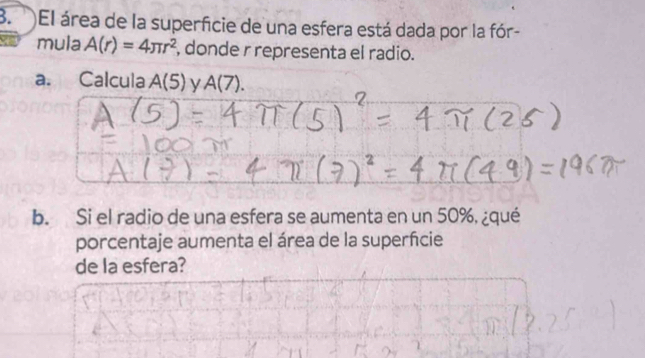 3. El área de la superficie de una esfera está dada por la fór-
mula A(r) = 4πr², donde r representa el radio.
a. Calcula A(5) y A(7).
A (5) = 4 π (5)² = 4 π (25)
= 100 π
A (7) = 4 π (7)² = 4 π (49) = 196 π
b. Si el radio de una esfera se aumenta en un 50%, ¿qué
porcentaje aumenta el área de la superficie
de la esfera?